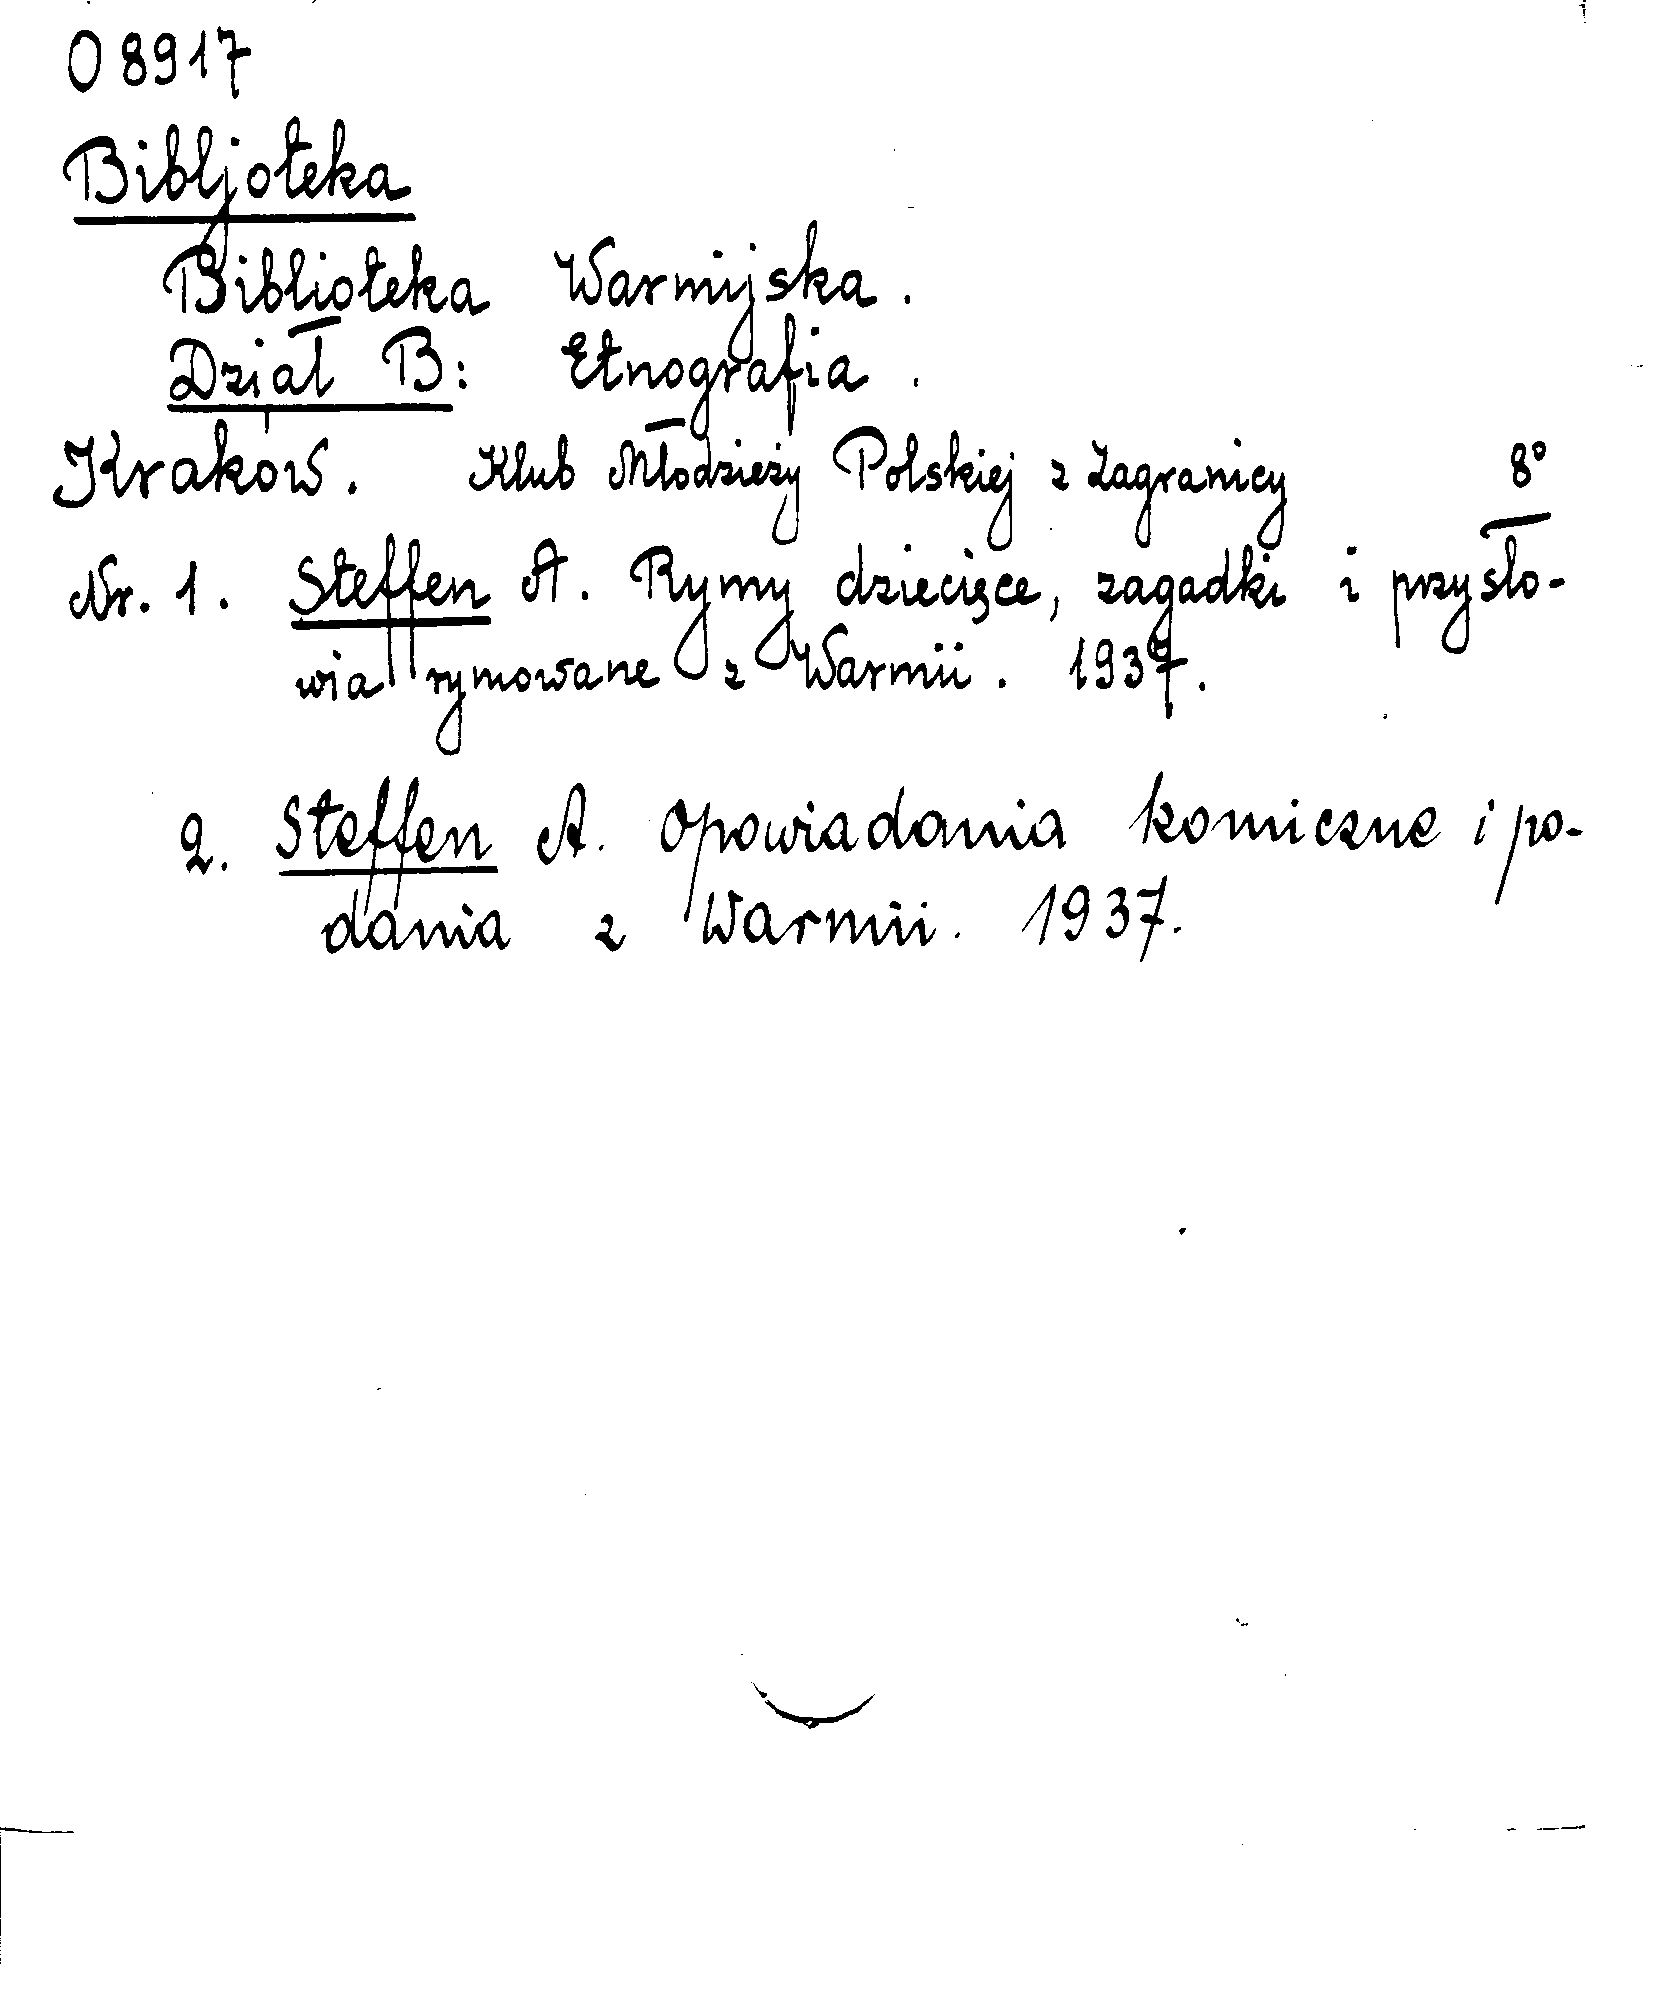 O 8917
Bibljoteka
Biblioteka Warmijska.
Dział B: Etnografia.
Kraków. Klub Młodzieży Polskiej z Zagranicy 8°
Nr. 1. Steffen A. Rymy dziecięce, zagadki i przysło-
wia rymowane z Warmii. 1937.
2. Steffen A. Opowiadania komiczne i po-
dania z Warmii. 1937.